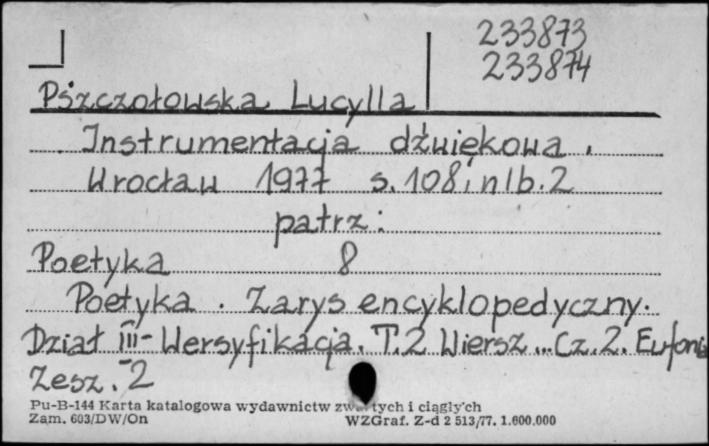 233873
233874
Pszczołowska Lucylla
Instrumentacja dźwiękowa.
Wrocław 1977 s. 108, nlb. 2
patrz:
Poetyka 8
Poetyka. Zarys encyklopedyczny.
Dział III - Wersyfikacja. T. 2 Wiersz.. Cz. 2. Eufonia
Zesz. 2
Pu-B-144 Karta katalogowa wydawnictw zwartych i ciągłych
Zam. 603/DW/On WZGraf. Z-d 2 513/77. 1.600.000